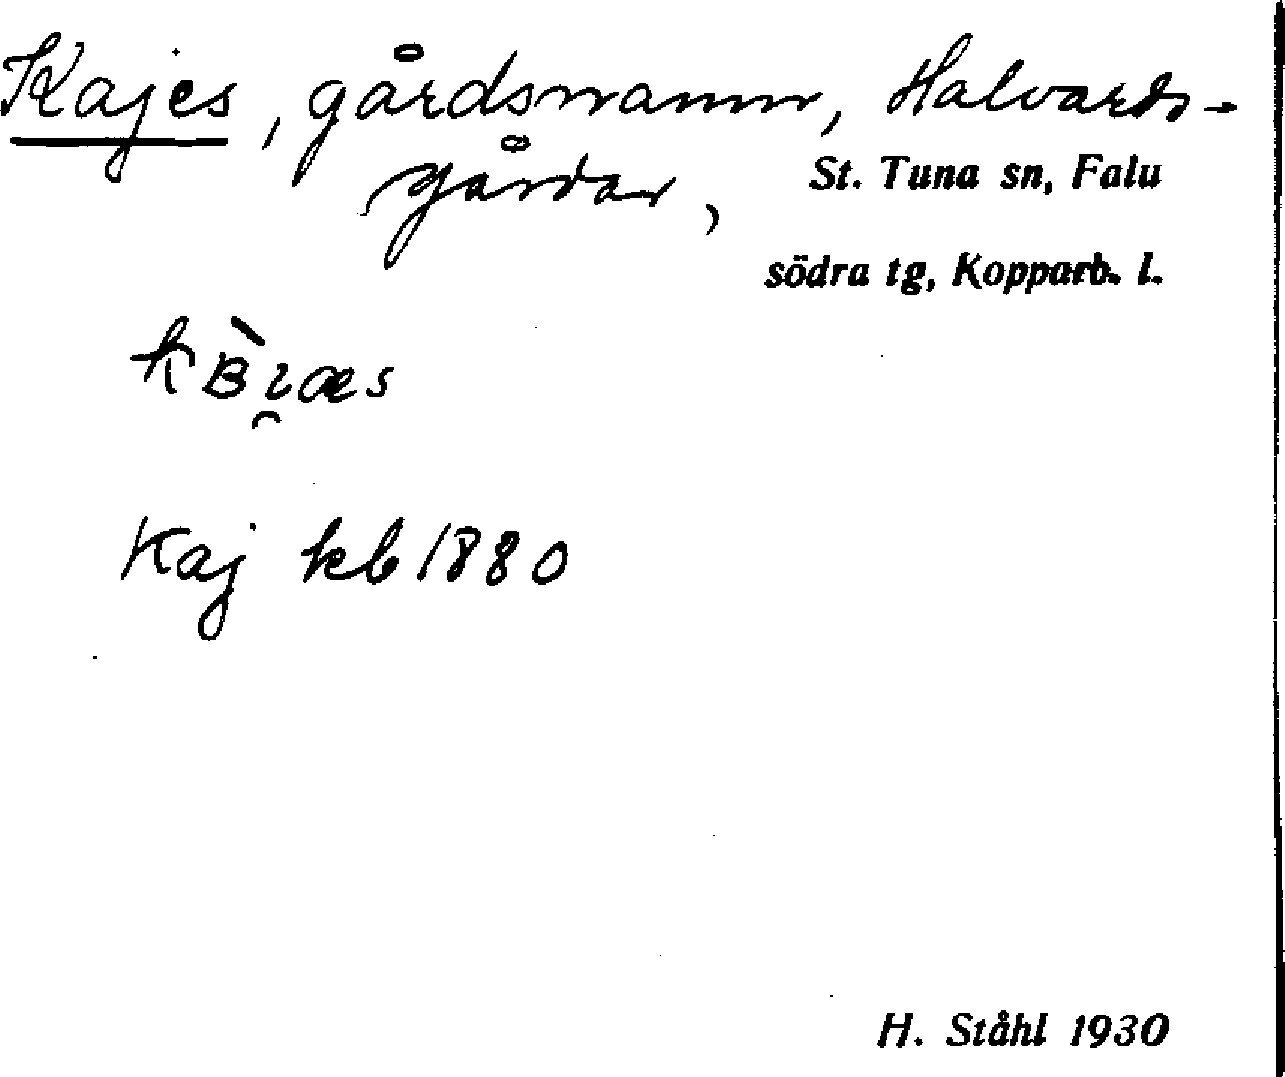 Kajes, gårdsnamn, Halvards-
gårdar,
St. Tuna sn, Falu
södra tg, Kopparb. l.
kʙ̀i̯æs
Kaj kb 1880
H. Ståhl 1930